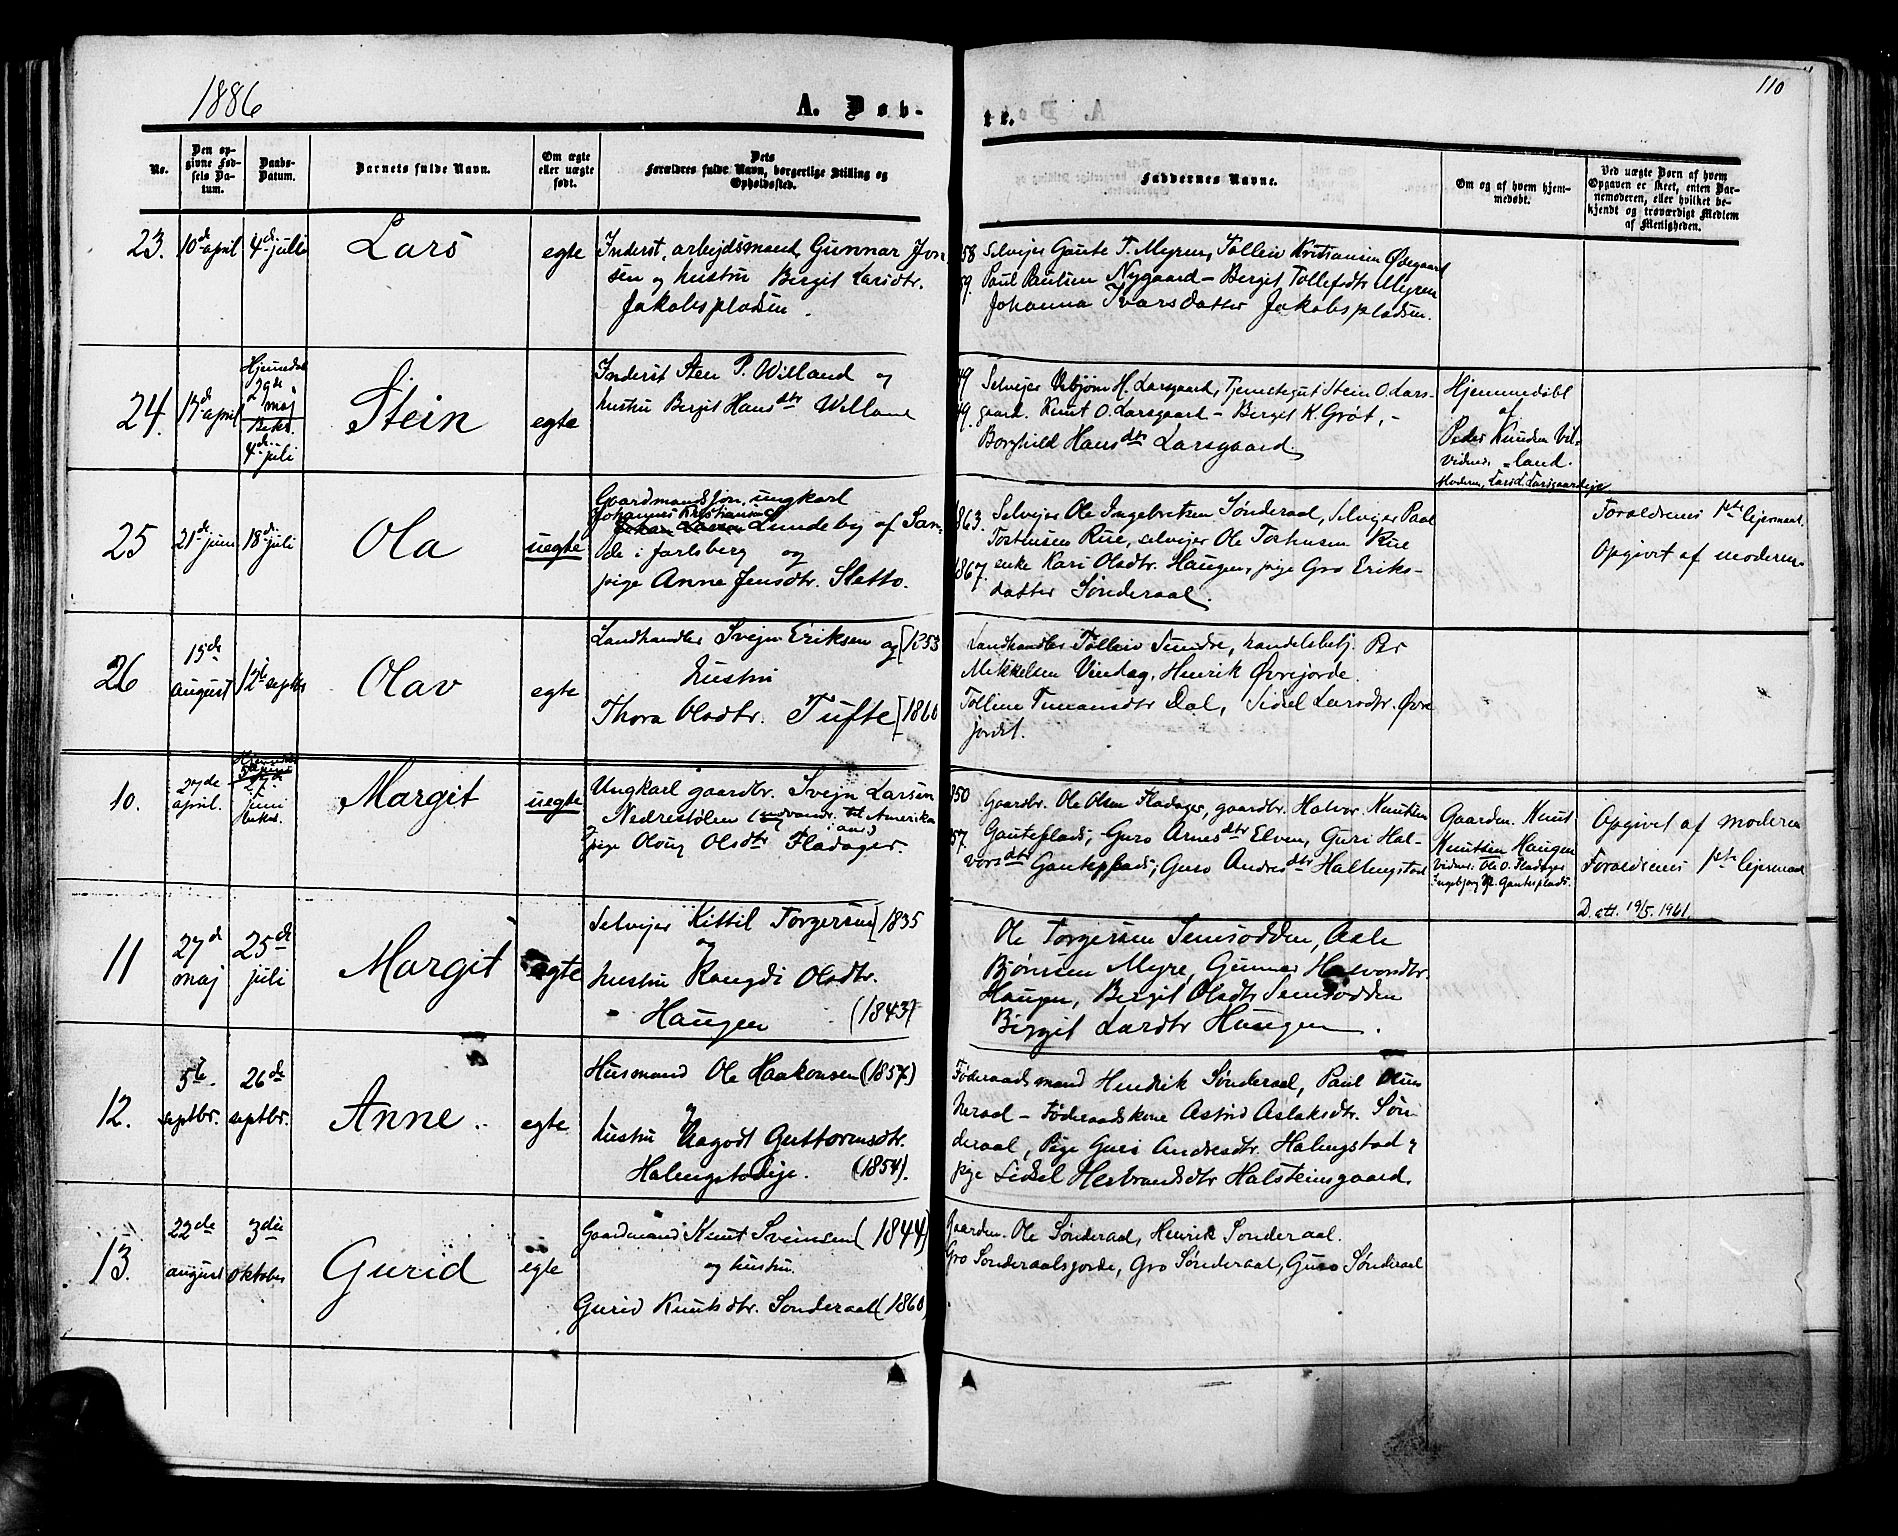 1886
A. Døb-
te.
110
No.
Den op-
givne Fød-
sels Da-
tum.
Daabs-
Datum.
Barnets fulde Navn.
Om ægte
eller uægte
født.
Dets
Forældres fulde Navn, borgerlige Stilling og
Opholdssted.
Faddernes Navne.
Om og af hvem hjem-
medøbt.
Ved uægte Børn af hvem
Opgaven er skeet, enten Bar-
nemoderen, eller hvilket be-
kjendt og troværdigt Medlem
af Menigheden.
23. 10de april 4de juli Lars egte
Inderst, arbejdsmand, Gunnar Jon
sen og hustru Bergit Larsdtr.
Jakobspladsen.
58 Selvejer Gaute T. Myren, Tolleiv Kristiansen Ødegaard
59. Paul Paulsen Nygaard – Bergit Tollefsdtr Myren
Johanna Ivarsdatter Jakobspladsen.
24. 17de april
29de
maj
4de juli
Stein egte
Inderst Sten P. Willand og
hustru Bergit Hansdtr Willand
49 Selvejer Asbjørn H. Larsgaard, Tjenestegut Stein O. Lars-
49. gaard. Knut O. Larsgaard – Bergit K. Grøt, –
Borghild Hansdtr Larsgaard.
Hjemmedøbt
af
Peder Knudsen Vil-
Vidner: =land.
Moderen, Lars L. Larsgaardeje
25 21de juni 18de juli Ola uegte
Gaardmandssøn, ungkarl
Johannes Kristiansen
Lundeby af San-
de i Jarlsberg og
pige Anne Jensdtr. Sletto.
1863. Selvejer Ole Ingebretsen Sønderaal, Selvejer Paal
Torstensen Rue, selvejer Ole Torstensen Rue
1867. enke Kari Olsdtr. Haugen, pige Gro Eriks-
datter Sønderaal.
Forældrenes 1ste lejermaal.
Opgivet af moderen.
26 15de august 12te septbr Olav egte
Landhandler Svejn Eriksen og [1853
hustru
Thora Olsdtr. Tufte [1860
Landhandler Tolleiv Sundre, handelsbetj. Per
Mikkelsen Vindag, Henrik Øvrejorde.
Tolline Timansdtr Dal, Sidsel Larsdtr. Øvre
jordet.
10. 27de april.
27de
juni
Margit uegte
Ungkarl gaardbr. Svejn Larsen
Nedrestølen (udvandr. til Amerika
i aar)
Pige Oloug Olsdtr Fladager.
1850 Gaardbr. Ole Olsen Fladager, gaardbr. Halvor Knutsen
57. Gauteplads, – Guro Arnesdtr Elven, Guri Hal-
vorsdtr Gauteplads, Guro Andresdtr Halingstad
Gaardm. Knut
Knutsen Haugen
Vidner: Ole O. Fladager
Opgivet af moderen
Forældrenes 1ste lejermaal
D. att. 19/5. 1961.
11 27de maj 25de juli Margit egte
Selvejer Kittil Torgersen [1835
og
hustru Rangdi Olsdtr.
Haugen (1843)
Ole Torgersen Semsodden, Asle
Bjørnsen Myre, Gunner Halvorsdtr.
Haugen, Bergit Olsdtr Semsodden
Birgit Larsdtr Haugen.
12. 5te septbr. 26de septbr. Anne egte
Husmand Ole Haakonsen (1857)
og
hustru Nagodt Guttormsdtr.
Halingstadeje. (1854).
Føderaadsmand Hendrik Sønderaal, Paul Olsen
Neraal – Føderaadskone Astrid Aslaksdtr. Søn
deraal, Pige Guri Andresdtr. Halingstad og
pige Sidsel Herbrandsdtr Halsteinsgaard.
13. 22de august 3die oktober Gurid egte
Gaardmand Knut Sveinsen (1844)
og hustru
Gurid Knutsdtr. Sønderaal (1860)
Gaardm. Ole Sønderaal, Henrik Sønderaal.
Gro Sønderaalsjorde, Gro Sønderaal, Guro Sønderaal